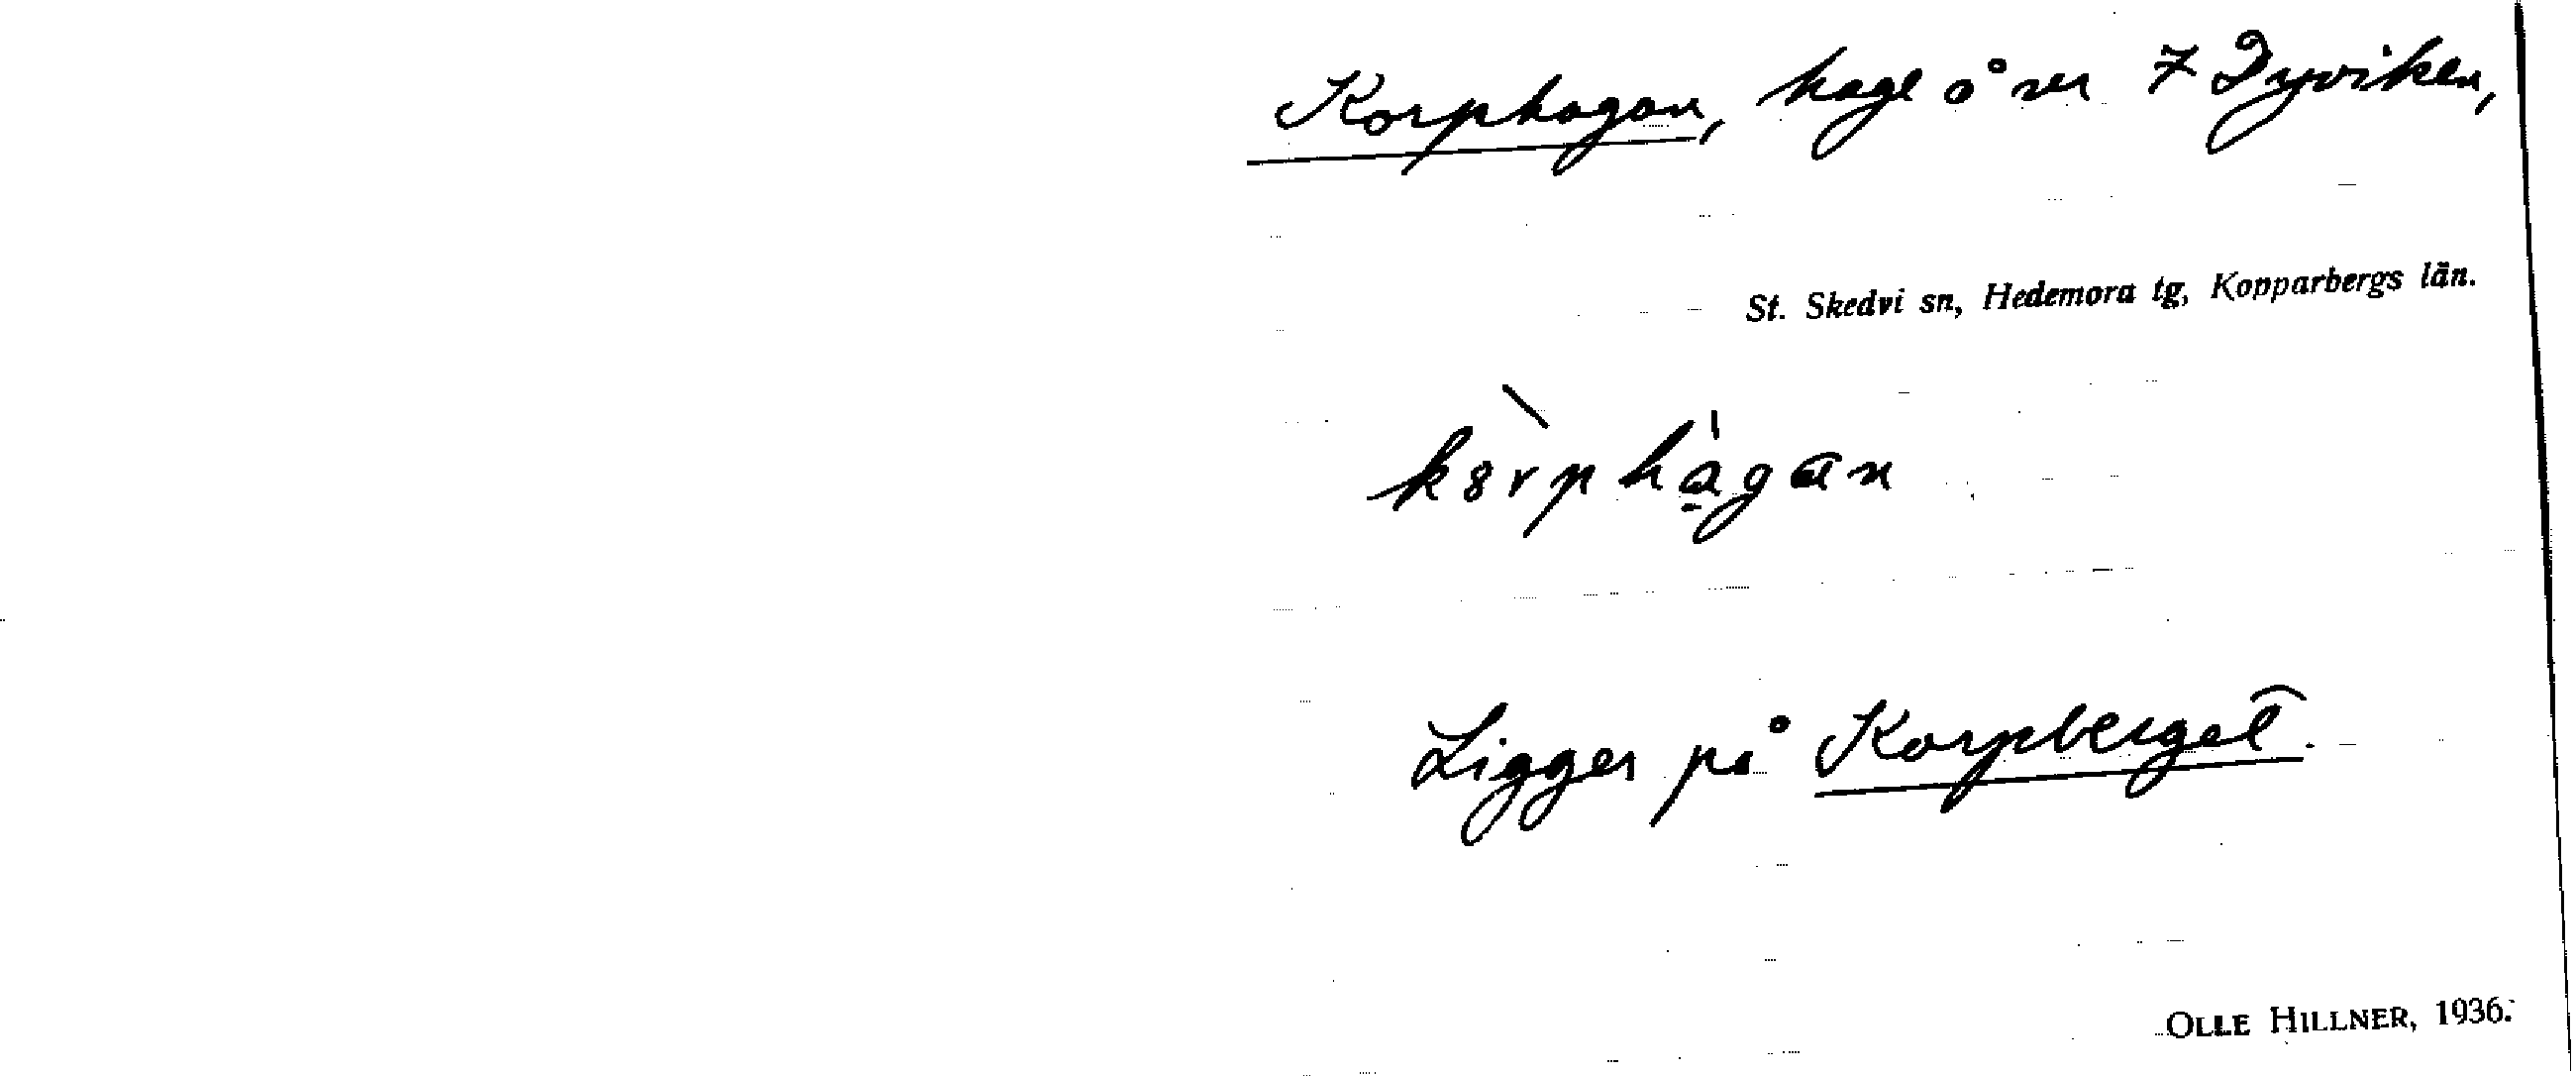 Korphagan, hage över 7 Dyviken,
St. Skedvi sn, Hedemora tg, Kopparbergs län.
kȣrphagan
Ligger på Korpberget.
OLLE HILLNER, 1936.